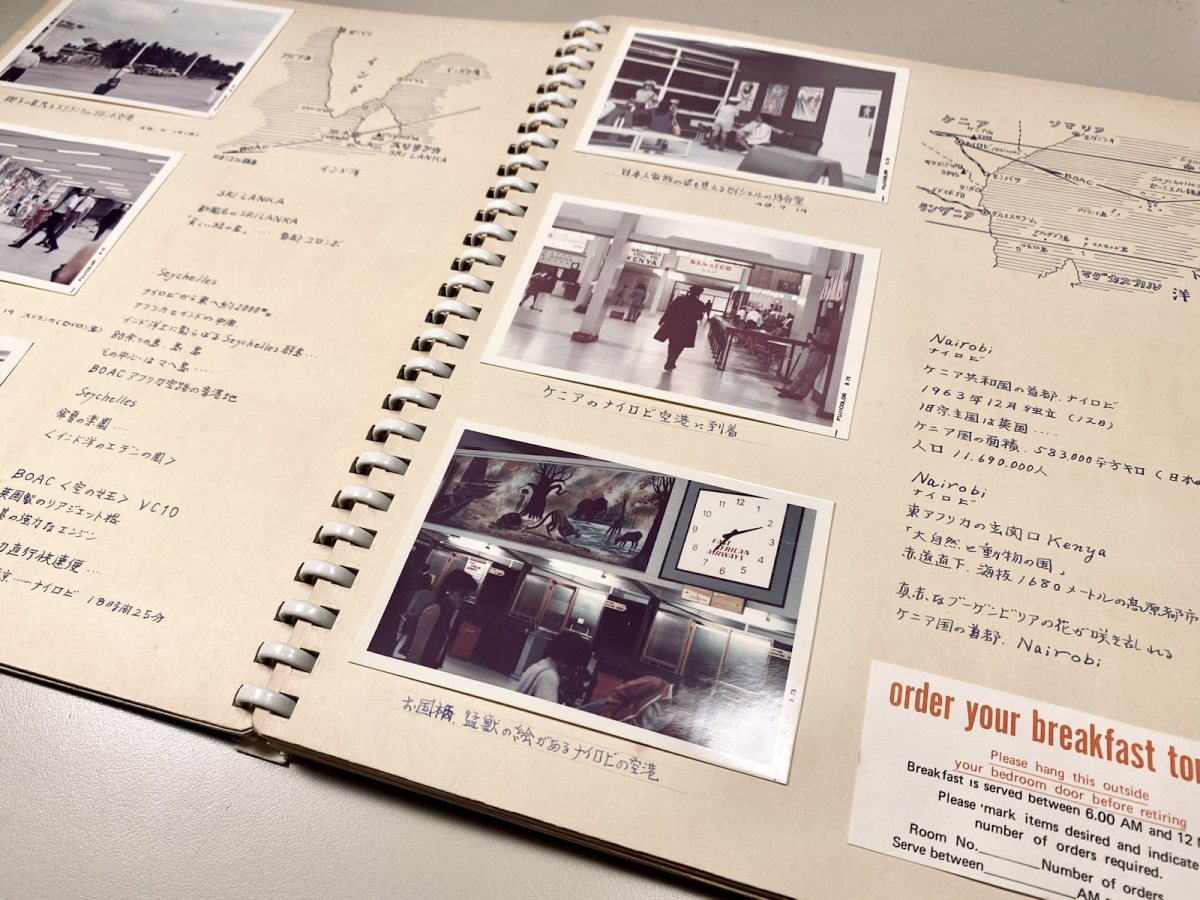 ボンベイ
インド
スリランカ
SRI LANKA
BOAC
インド洋
SRI LANKA
新国名のSRI LANKA
首都コロンボ
Seychelles
ナイロビから東へ約2000キロ
アフリカとインドの中庸
インド洋上に散らばるSeychelles群島…
80余りの島、島、島
その中心はマヘ島……
BOACアフリカ空路の寄港地
Seychelles
常夏の楽園……
<インド洋のエデンの園>
BOAC <空の女王> VC10
英国製のリアジェット機
基の強力なエンジン
直行快速便…
京……ナイロビ 18時間25分
日本人家族の姿も見えるセイシェルの待合室
48.7.19
WELCOMES
YOU TO
KENYA
FUJICOLOR 8.73
ケニアのナイロビ空港に到着
12
11
1
10
2
9
3
8
4
7
6
5
EAST
AFRICAN
AIRWAYS
お国柄、猛獣の絵があるナイロビの空港
ケニア
ソマリア
ナイロビ Nairobi
モンバサ
BOAC
Seychelles
タンザニア
ダルエスサラーム
マダガスカル
洋
Nairobi
ナイロビ
ケニア共和国の首都、ナイロビ
1963年12月独立(12日)
旧宗主国は英国‥‥
ケニア国の面積、583,000平方キロ(日本の
人口 11.690.000人
Nairobi
ナイロビ
東アフリカの玄関口Kenya
「大自然と動物の国」
赤道直下、海抜1680メートルの高原都市
真赤なブーゲンビリアの花が咲き乱れる
ケニア国の首都、Nairobi
order your breakfast to
Please hang this outside
your bedroom door before retiring
Breakfast is served between 6.00 AM and 12
Please mark items desired and indicate
number of orders required.
Room No.______Number of orders
Serve between______AM